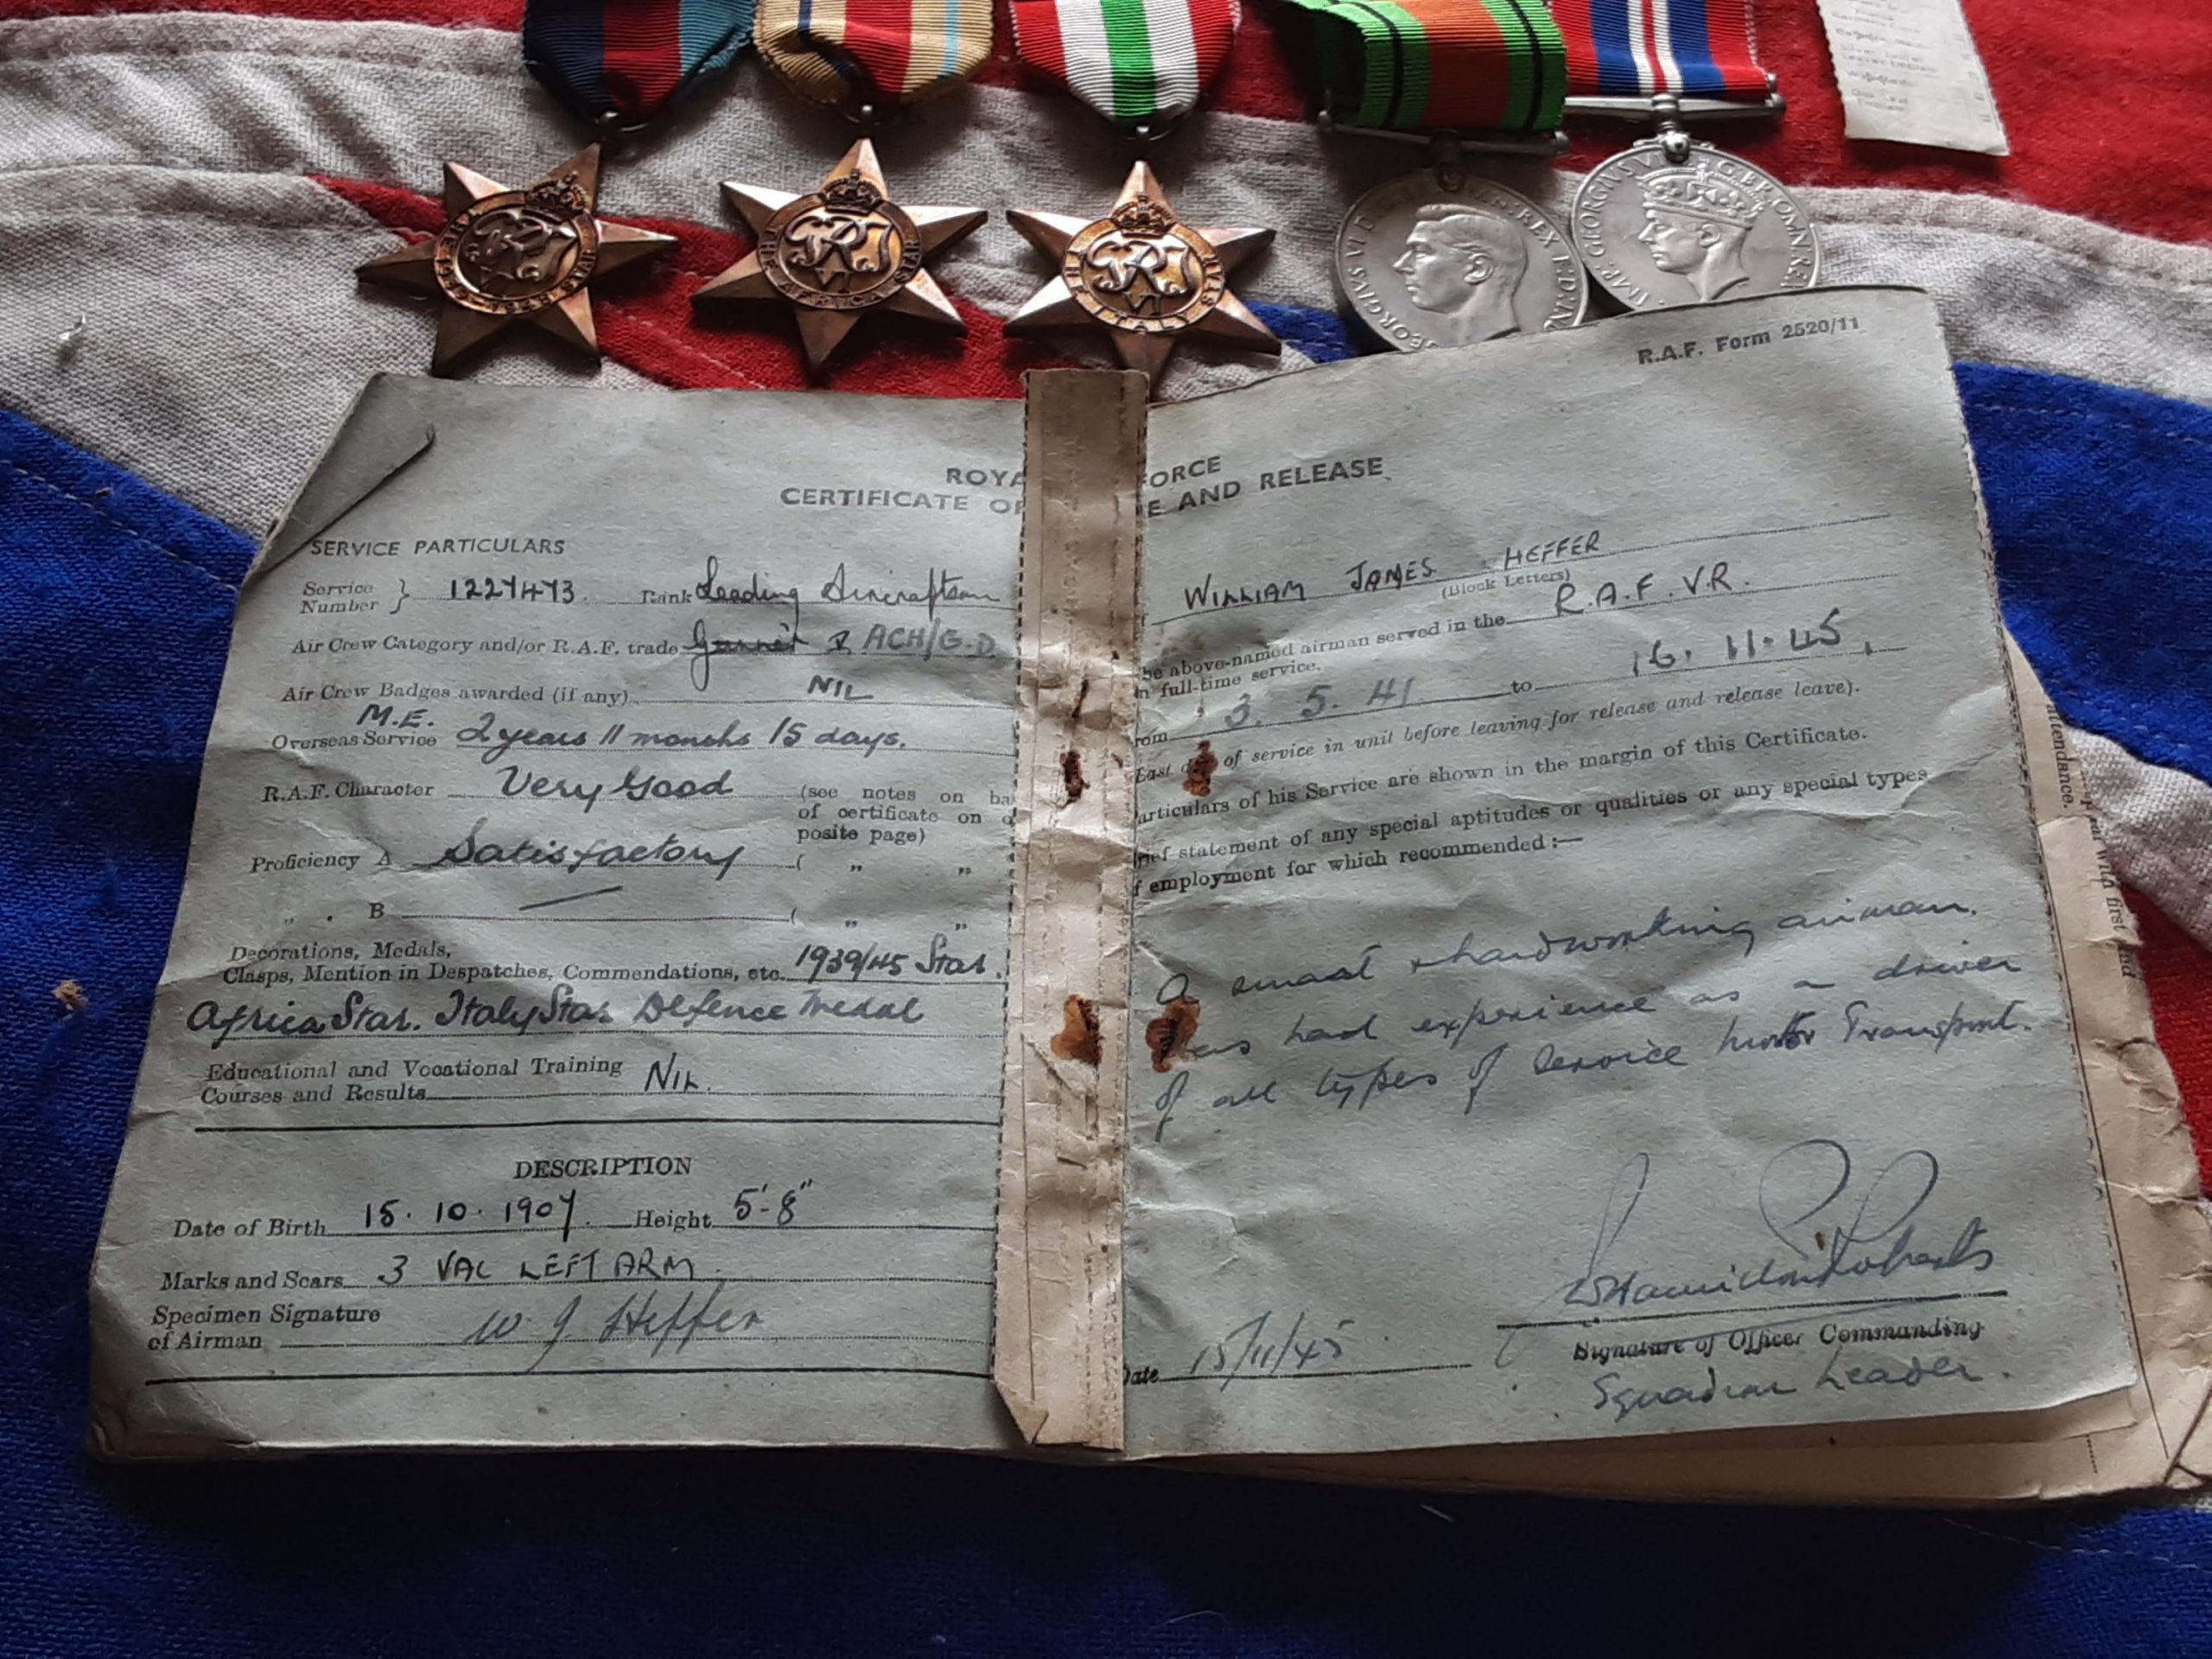 THE AFRICA STAR
THE ITALY STAR
GEORGIVS VI D
REX F.D. IND
GEORGIVS VI
G:BR:OMN:REX
R.A.F. Form 2520/11
ROYA FORCE
CERTIFICATE OF E AND RELEASE
SERVICE PARTICULARS
Service Number } 1227473. Rank Leading Aircraftman
Air Crew Category and/or R.A.F. trade Gunner ACH/G.D.
Air Crew Badges awarded (if any) NIL
M.E.
Overseas Service 2 years 11 months 15 days.
R.A.F. Character Very Good (see notes on ba
of certificate on o
posite page)
Proficiency A Satisfactory ( „ „
„ . B — ( „ „
Decorations, Medals,
Clasps, Mention in Despatches, Commendations, etc. 1939/45 Star.
Africa Star. Italy Star Defence Medal
Educational and Vocational Training
Courses and Results NIL.
DESCRIPTION
Date of Birth 15. 10. 1907. Height 5'-8"
Marks and Scars 3 VAC LEFT ARM.
Specimen Signature
of Airman W. J. Heffer
WILLIAM JAMES HEFFER
(Block Letters)
he above-named airman served in the R.A.F.V.R.
n full-time service.
rom 3. 5. 41. to 16. 11. 45.
Last d of service in unit before leaving for release and release leave).
articulars of his Service are shown in the margin of this Certificate.
rief statement of any special aptitudes or qualities or any special types
f employment for which recommended :—
A smart & hardworking airman.
as had experience as a driver
of all types of Service Motor Transport.
Signature of Officer Commanding
Squadron Leader.
Date 15/11/45
attendance.
with first